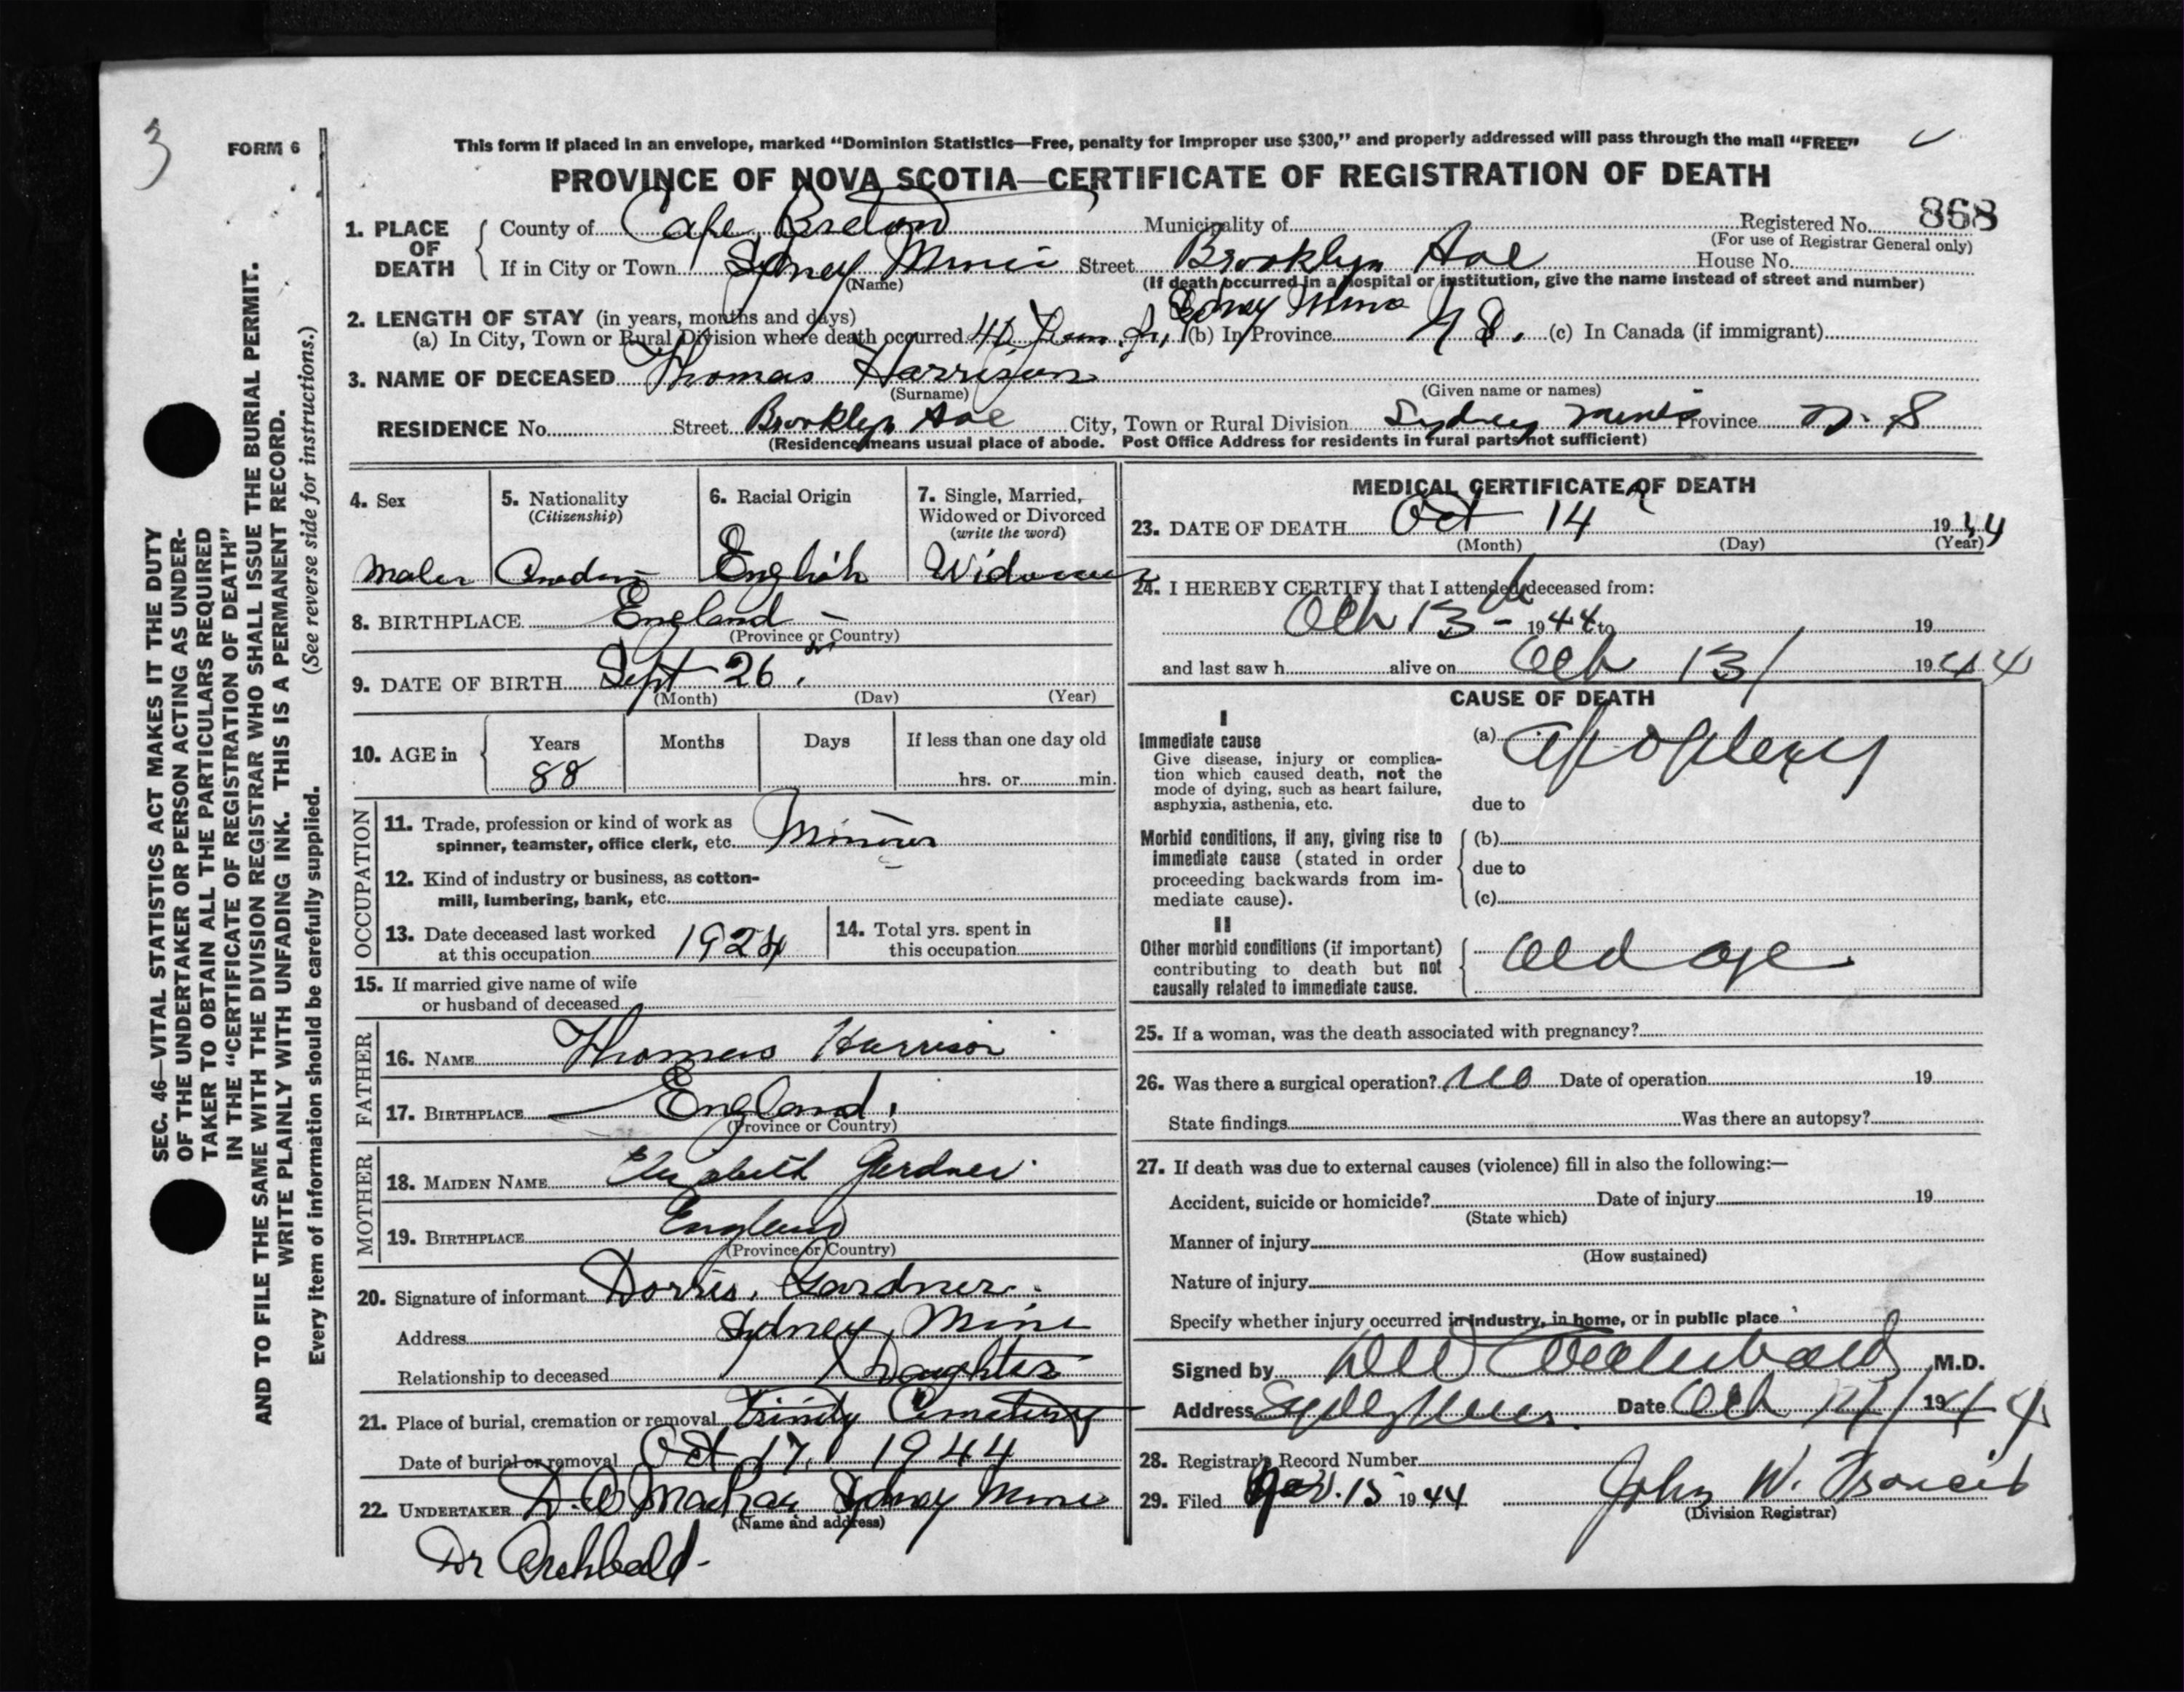 3
FORM 6
This form if placed in an envelope, marked “Dominion Statistics—Free, penalty for improper use $300,” and properly addressed will pass through the mail “FREE”
PROVINCE OF NOVA SCOTIA—CERTIFICATE OF REGISTRATION OF DEATH
1. PLACE OF DEATH County of Cape Breton Municipality of Registered No. 868
(For use of Registrar General only)
If in City or Town Sydney Mines Street Brooklyn House No.
(Name) (If death occurred in a hospital or institution, give the name instead of street and number)
2. LENGTH OF STAY (in years, months and days) Sydney Mines
(a) In City, Town or Rural Division where death occurred (b) In Province N S. (c) In Canada (if immigrant)
3. NAME OF DECEASED Thomas Harrison
(Surname) (Given name or names)
RESIDENCE No. Street Brooklyn City, Town or Rural Division Sydney Mines Province N. S
(Residence means usual place of abode. Post Office Address for residents in rural parts not sufficient)
4. Sex
Male
5. Nationality
(Citizenship)
6. Racial Origin
English
7. Single, Married,
Widowed or Divorced
(write the word)
Widower
8. BIRTHPLACE England
(Province or Country)
9. DATE OF BIRTH Sept 26
(Month) (Day) (Year)
10. AGE in Years Months Days If less than one day old
88 hrs. or min.
OCCUPATION
11. Trade, profession or kind of work as
spinner, teamster, office clerk, etc.
12. Kind of industry or business, as cotton-
mill, lumbering, bank, etc.
13. Date deceased last worked
at this occupation 1924
14. Total yrs. spent in
this occupation
15. If married give name of wife
or husband of deceased
FATHER
16. NAME Thomas Harrison
17. BIRTHPLACE England
(Province or Country)
MOTHER
18. MAIDEN NAME Elizabeth Gardner
19. BIRTHPLACE England
(Province or Country)
20. Signature of informant Dorris Gardner
Address Sydney Mine
Relationship to deceased Daughter
21. Place of burial, cremation or removal Trinity Cemetery
Date of burial or removal Oct 17, 1944
22. UNDERTAKER Sydney Mine
(Name and address)
Dr Archbald
MEDICAL CERTIFICATE OF DEATH
23. DATE OF DEATH Oct 14 1944
(Month) (Day) (Year)
24. I HEREBY CERTIFY that I attended deceased from:
Oct 13 1944 to 19
and last saw h alive on Oct 13/ 1944
CAUSE OF DEATH
I
Immediate cause
Give disease, injury or complica-
tion which caused death, not the
mode of dying, such as heart failure,
asphyxia, asthenia, etc.
(a) Apoplexy
due to
Morbid conditions, if any, giving rise to
immediate cause (stated in order
proceeding backwards from im-
mediate cause).
(b)
due to
(c)
II
Other morbid conditions (if important)
contributing to death but not
causally related to immediate cause.
Old age
25. If a woman, was the death associated with pregnancy?
26. Was there a surgical operation? No Date of operation 19
State findings Was there an autopsy?
27. If death was due to external causes (violence) fill in also the following:—
Accident, suicide or homicide? Date of injury 19
(State which)
Manner of injury
(How sustained)
Nature of injury
Specify whether injury occurred in industry, in home, or in public place
Signed by Archibald M.D.
Address Sydney Mines Date Oct 14/ 1944
28. Registrar's Record Number
29. Filed Nov. 15 1944 John W. Francis
(Division Registrar)
SEC. 46—VITAL STATISTICS ACT MAKES IT THE DUTY
OF THE UNDERTAKER OR PERSON ACTING AS UNDER-
TAKER TO OBTAIN ALL THE PARTICULARS REQUIRED
IN THE “CERTIFICATE OF REGISTRATION OF DEATH”
AND TO FILE THE SAME WITH THE DIVISION REGISTRAR WHO SHALL ISSUE THE BURIAL PERMIT.
WRITE PLAINLY WITH UNFADING INK. THIS IS A PERMANENT RECORD.
Every item of information should be carefully supplied. (See reverse side for instructions.)